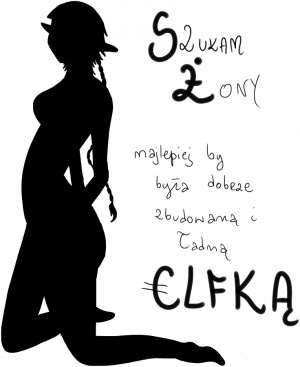 SZUKAM
ŻONY
najlepiej by
była dobrze
zbudowaną i
ładną
ELFKĄ